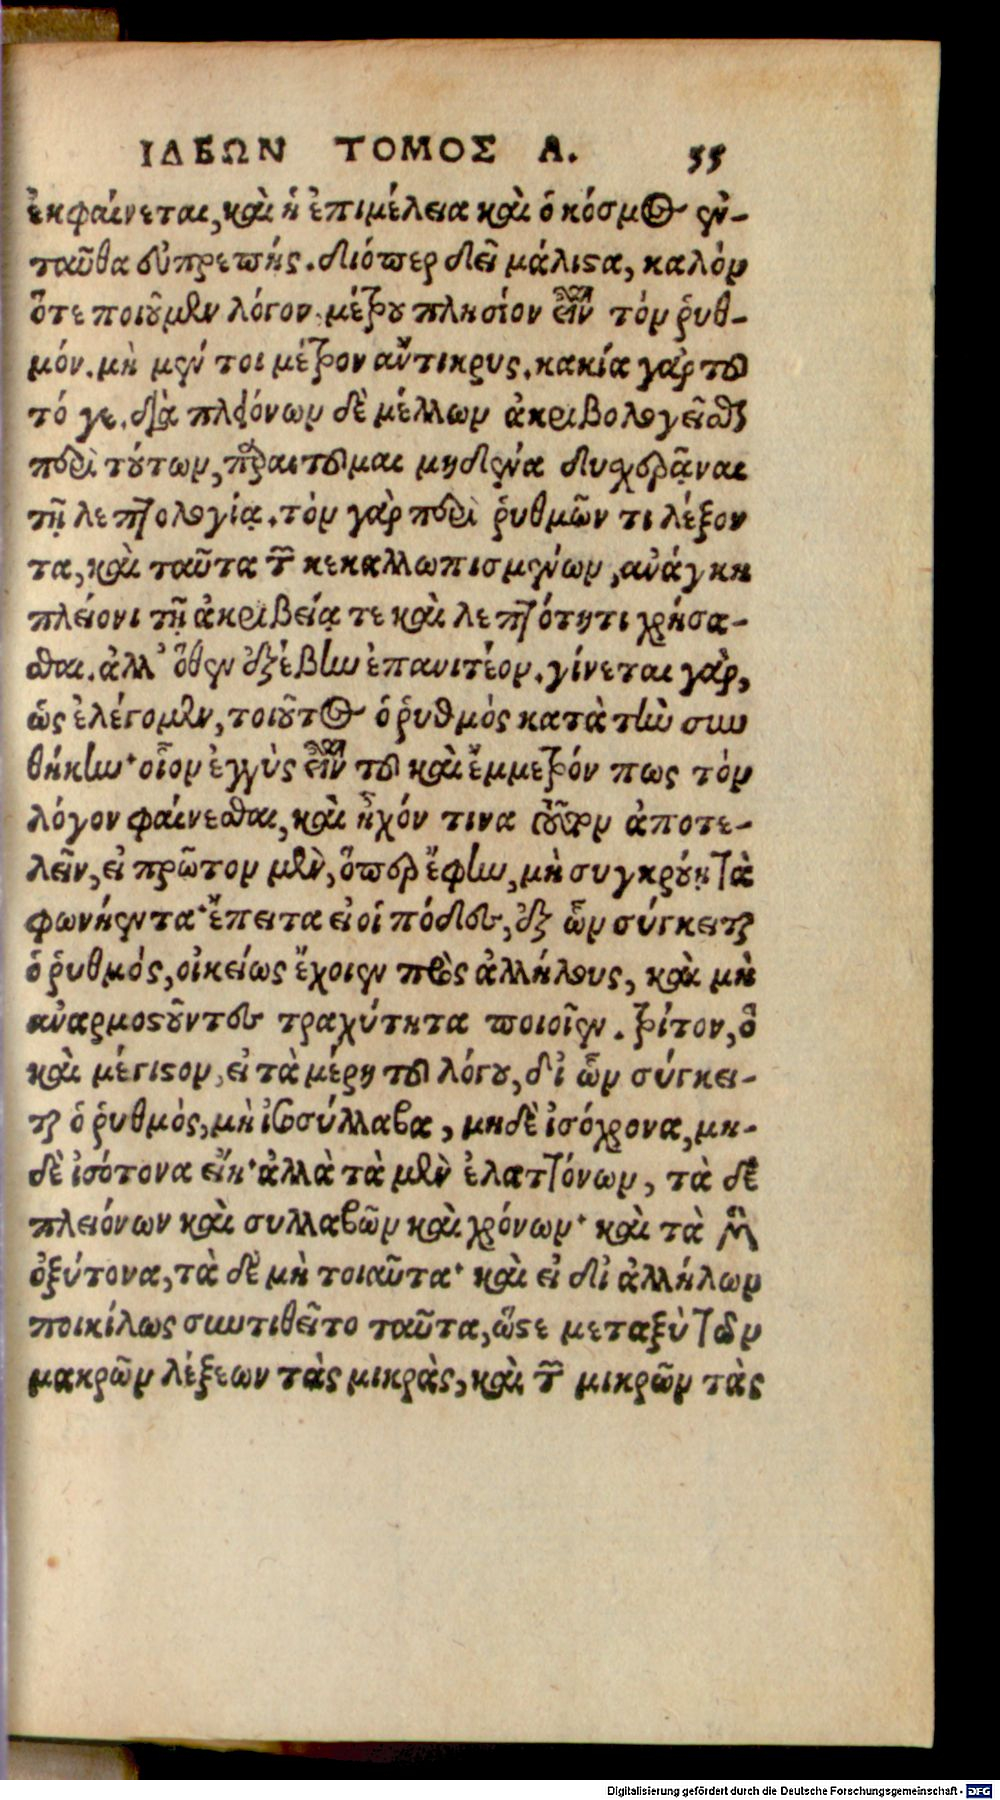 ΙΔΕΩΝ ΤΟΜΟΣ Α. 55
ἐκφαίνεται, καὶ ἡ ἐπιμέλεια καὶ ὁ κόσμος ἐν-
ταῦθα εὐπρεπής. διόπερ δεῖ μάλιστα, καλὸν
ὅτε ποιοῦμεν λόγον μέτρου πλησίον εἶναι τὸν ῥυθ-
μόν. μὴ μέν τοι μέτρον ἄντικρυς. κακία γὰρ τοῦ
τό γε. διὰ πλειόνων δὲ μέλλων ἀκριβολογεῖσθαι
περὶ τούτων, παραιτοῦμαι μηδένα δυσχερᾶναι
τῇ λεπτολογίᾳ. τὸν γὰρ περὶ ῥυθμῶν τι λέξον
τα, καὶ ταῦτα τῶν κεκαλλωπισμένων, ἀνάγκη
πλείονι τῇ ἀκριβείᾳ τε καὶ λεπτότητι χρήσα-
σθαι. ἀλλ' ὅθεν ἐξέβην ἐπανιτέον. γίνεται γὰρ,
ὡς ἐλέγομεν, τοιοῦτος ὁ ῥυθμὸς κατὰ τὴν συν
θήκην· οἷον ἐγγὺς εἶναι τοῦ καὶ ἔμμετρόν πως τὸν
λόγον φαίνεσθαι, καὶ ἦχόν τινα τοῦτον ἀποτε-
λεῖν, εἰ πρῶτον μὲν, ὅπερ ἔφην, μὴ συγκρούῃ τὰ
φωνήεντα· ἔπειτα εἰ οἱ πόδες, ἐξ ὧν σύγκειται
ὁ ῥυθμός, οἰκείως ἔχοιεν πρὸς ἀλλήλους, καὶ μὴ
ἀναρμοστοῦντες τραχύτητα ποιοῖεν. τρίτον, ὃ
καὶ μέγιστον, εἰ τὰ μέρη τοῦ λόγου, δι' ὧν σύγκει-
ται ὁ ῥυθμὸς, μὴ ἰσοσύλλαβα, μηδὲ ἰσόχρονα, μη-
δὲ ἰσότονα εἴη· ἀλλὰ τὰ μὲν ἐλαττόνων, τὰ δὲ
πλειόνων καὶ συλλαβῶν καὶ χρόνων· καὶ τὰ μὲν
ὀξύτονα, τὰ δὲ μὴ τοιαῦτα· καὶ εἰ δι' ἀλλήλων
ποικίλως συντιθεῖτο ταῦτα, ὥστε μεταξὺ τῶν
μακρῶν λέξεων τὰς μικρὰς, καὶ τῶν μικρῶν τὰς
Digitalisierung gefördert durch die Deutsche Forschungsgemeinschaft - DFG